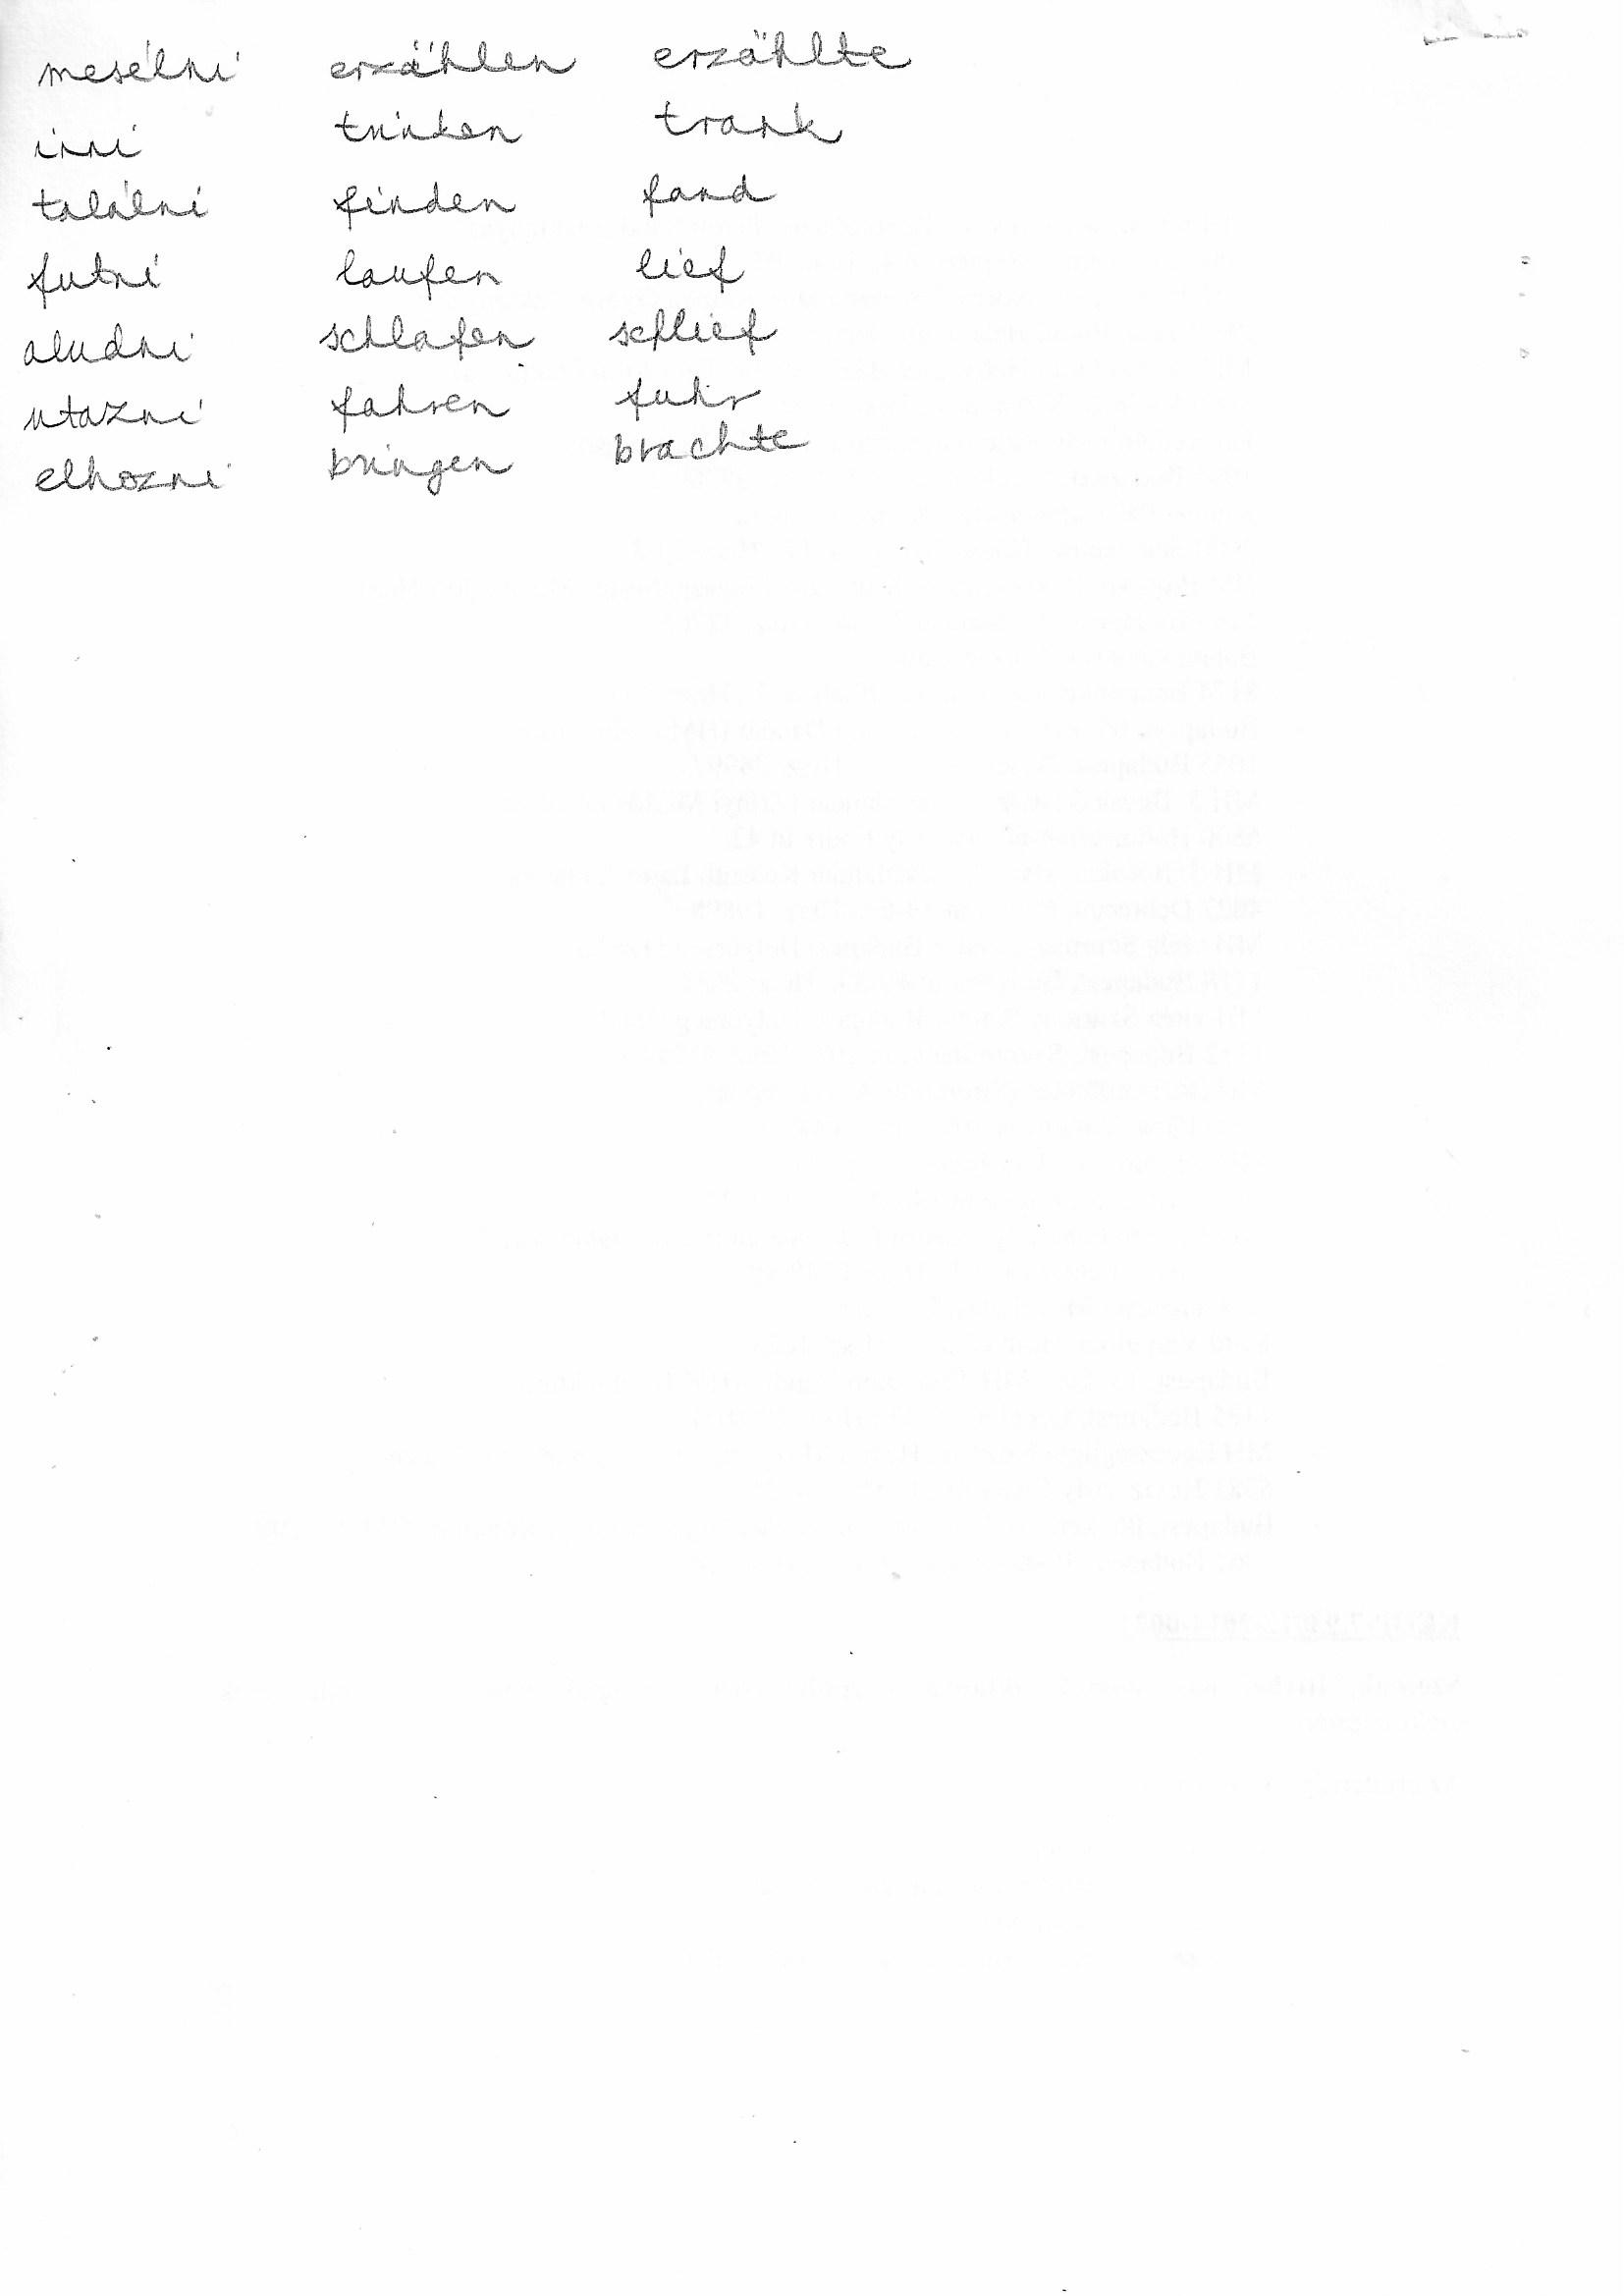 mesélni erzählen erzählte
inni trinken trank
találni finden fand
futni laufen lief
aludni schlafen schlief
utazni fahren fuhr
elhozni bringen brachte